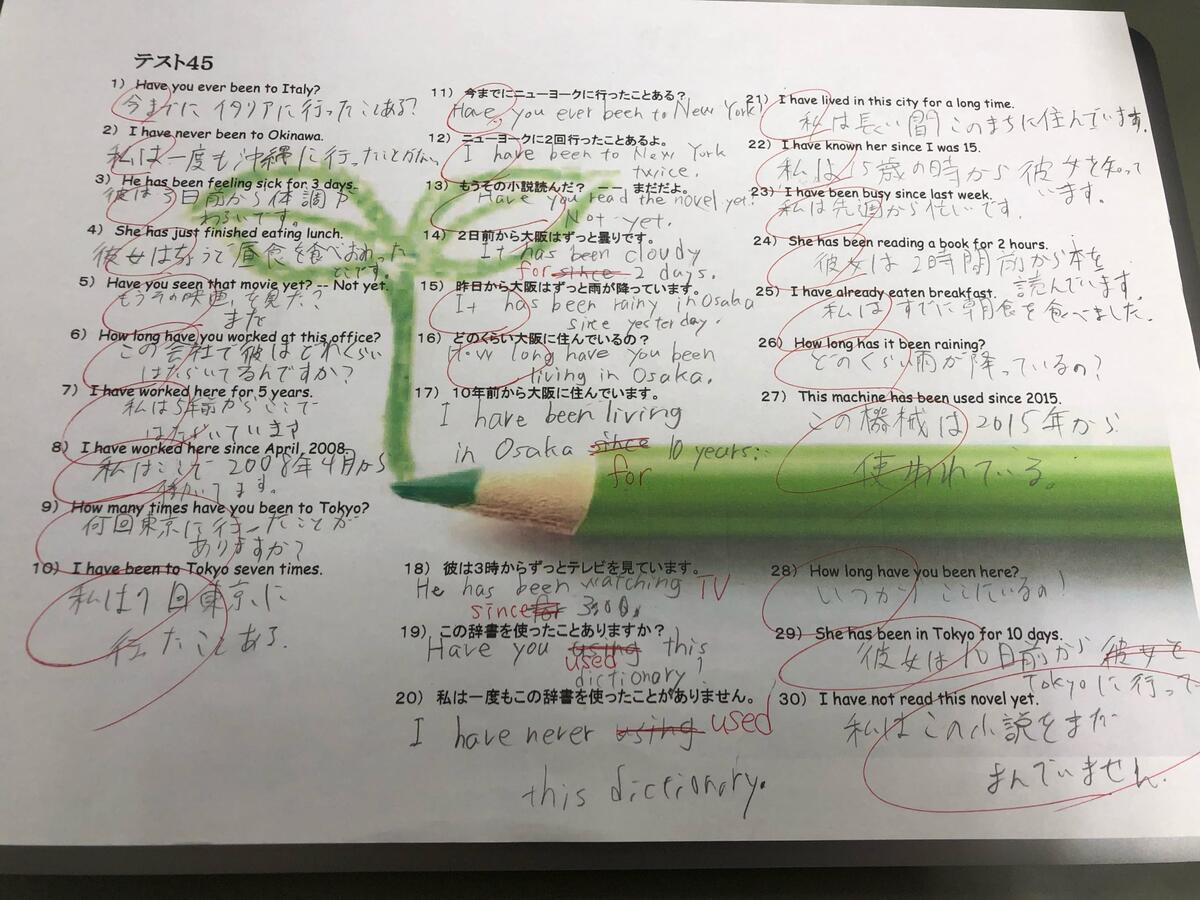 テスト45
1) Have you ever been to Italy?
今までに イタリアに行ったことある?
2) I have never been to Okinawa.
私は一度も沖縄に行ったことがない
3) He has been feeling sick for 3 days.
彼は3日前から体調が
わるいです。
4) She has just finished eating lunch.
彼女はちょうど昼食を食べおわった
とこです。
5) Have you seen that movie yet? -- Not yet.
もうその映画を見た?
まだ
6) How long have you worked at this office?
この会社で彼はどれくらい
はたらいてるんですか?
7) I have worked here for 5 years.
私は5年前からここで
はたらいています
8) I have worked here since April, 2008.
私はここで 2008年4月から
働いてます。
9) How many times have you been to Tokyo?
何回東京に行ったことが
ありますか?
10) I have been to Tokyo seven times.
私は7回東京に
行ったことある.
11) 今までにニューヨークに行ったことある?
Have you ever been to New York?
12) ニューヨークに2回行ったことあるよ。
I have been to New York
twice.
13) もうその小説読んだ? -- まだだよ。
Have you read the novel yet?
Not yet.
14) 2日前から大阪はずっと曇りです。
It has been cloudy
for since 2 days.
15) 昨日から大阪はずっと雨が降っています。
It has been rainy in Osaka
since yesterday.
16) どのくらい大阪に住んでいるの?
How long have you been
living in Osaka.
17) 10年前から大阪に住んでいます。
I have been living
in Osaka since 10 years.
for
18) 彼は3時からずっとテレビを見ています。
He has been watching TV
since for 3:00.
19) この辞書を使ったことありますか?
Have you using this
used
dictionary?
20) 私は一度もこの辞書を使ったことがありません。
I have never using used
this dictionary.
21) I have lived in this city for a long time.
私は長い間このまちに住んでいます.
22) I have known her since I was 15.
私は15歳の時から彼女を知って
います。
23) I have been busy since last week.
私は先週から忙いです.
24) She has been reading a book for 2 hours.
彼女は2時間前から本を
読んでいます.
25) I have already eaten breakfast.
私はすでに朝食を食べました.
26) How long has it been raining?
どのくらい雨が降っているの?
27) This machine has been used since 2015.
この機械は2015年から
使われている。
28) How long have you been here?
いつから ここにいるの!
29) She has been in Tokyo for 10 days.
彼女は10日前から 彼女も
Tokyoに行って
30) I have not read this novel yet.
私はこの小説をまだ
まんでいません.